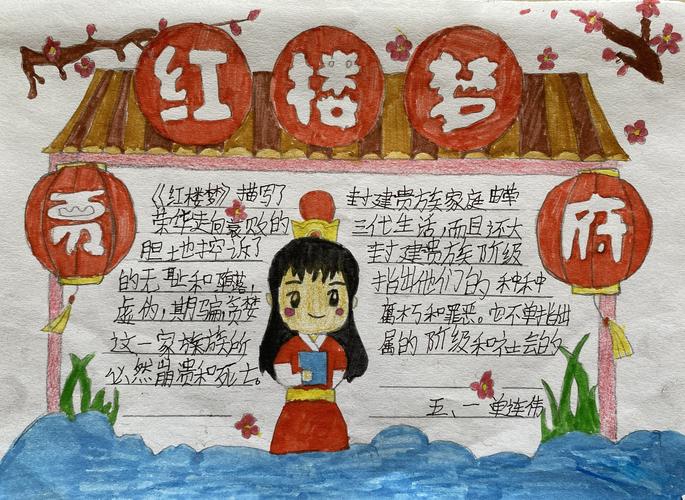 红楼梦
贾
府
《红楼梦》描写了 封建贵族家庭由
荣华走向衰败的 三代生活,而且还大
胆地控诉了 封建贵族阶级
的无耻和堕落, 指出他们的种种
虚伪,期骗贪婪 腐朽和罪恶。它不单指出
这一家族族所 属的阶级和社会的
必然崩溃和死亡。
五、一 单连伟